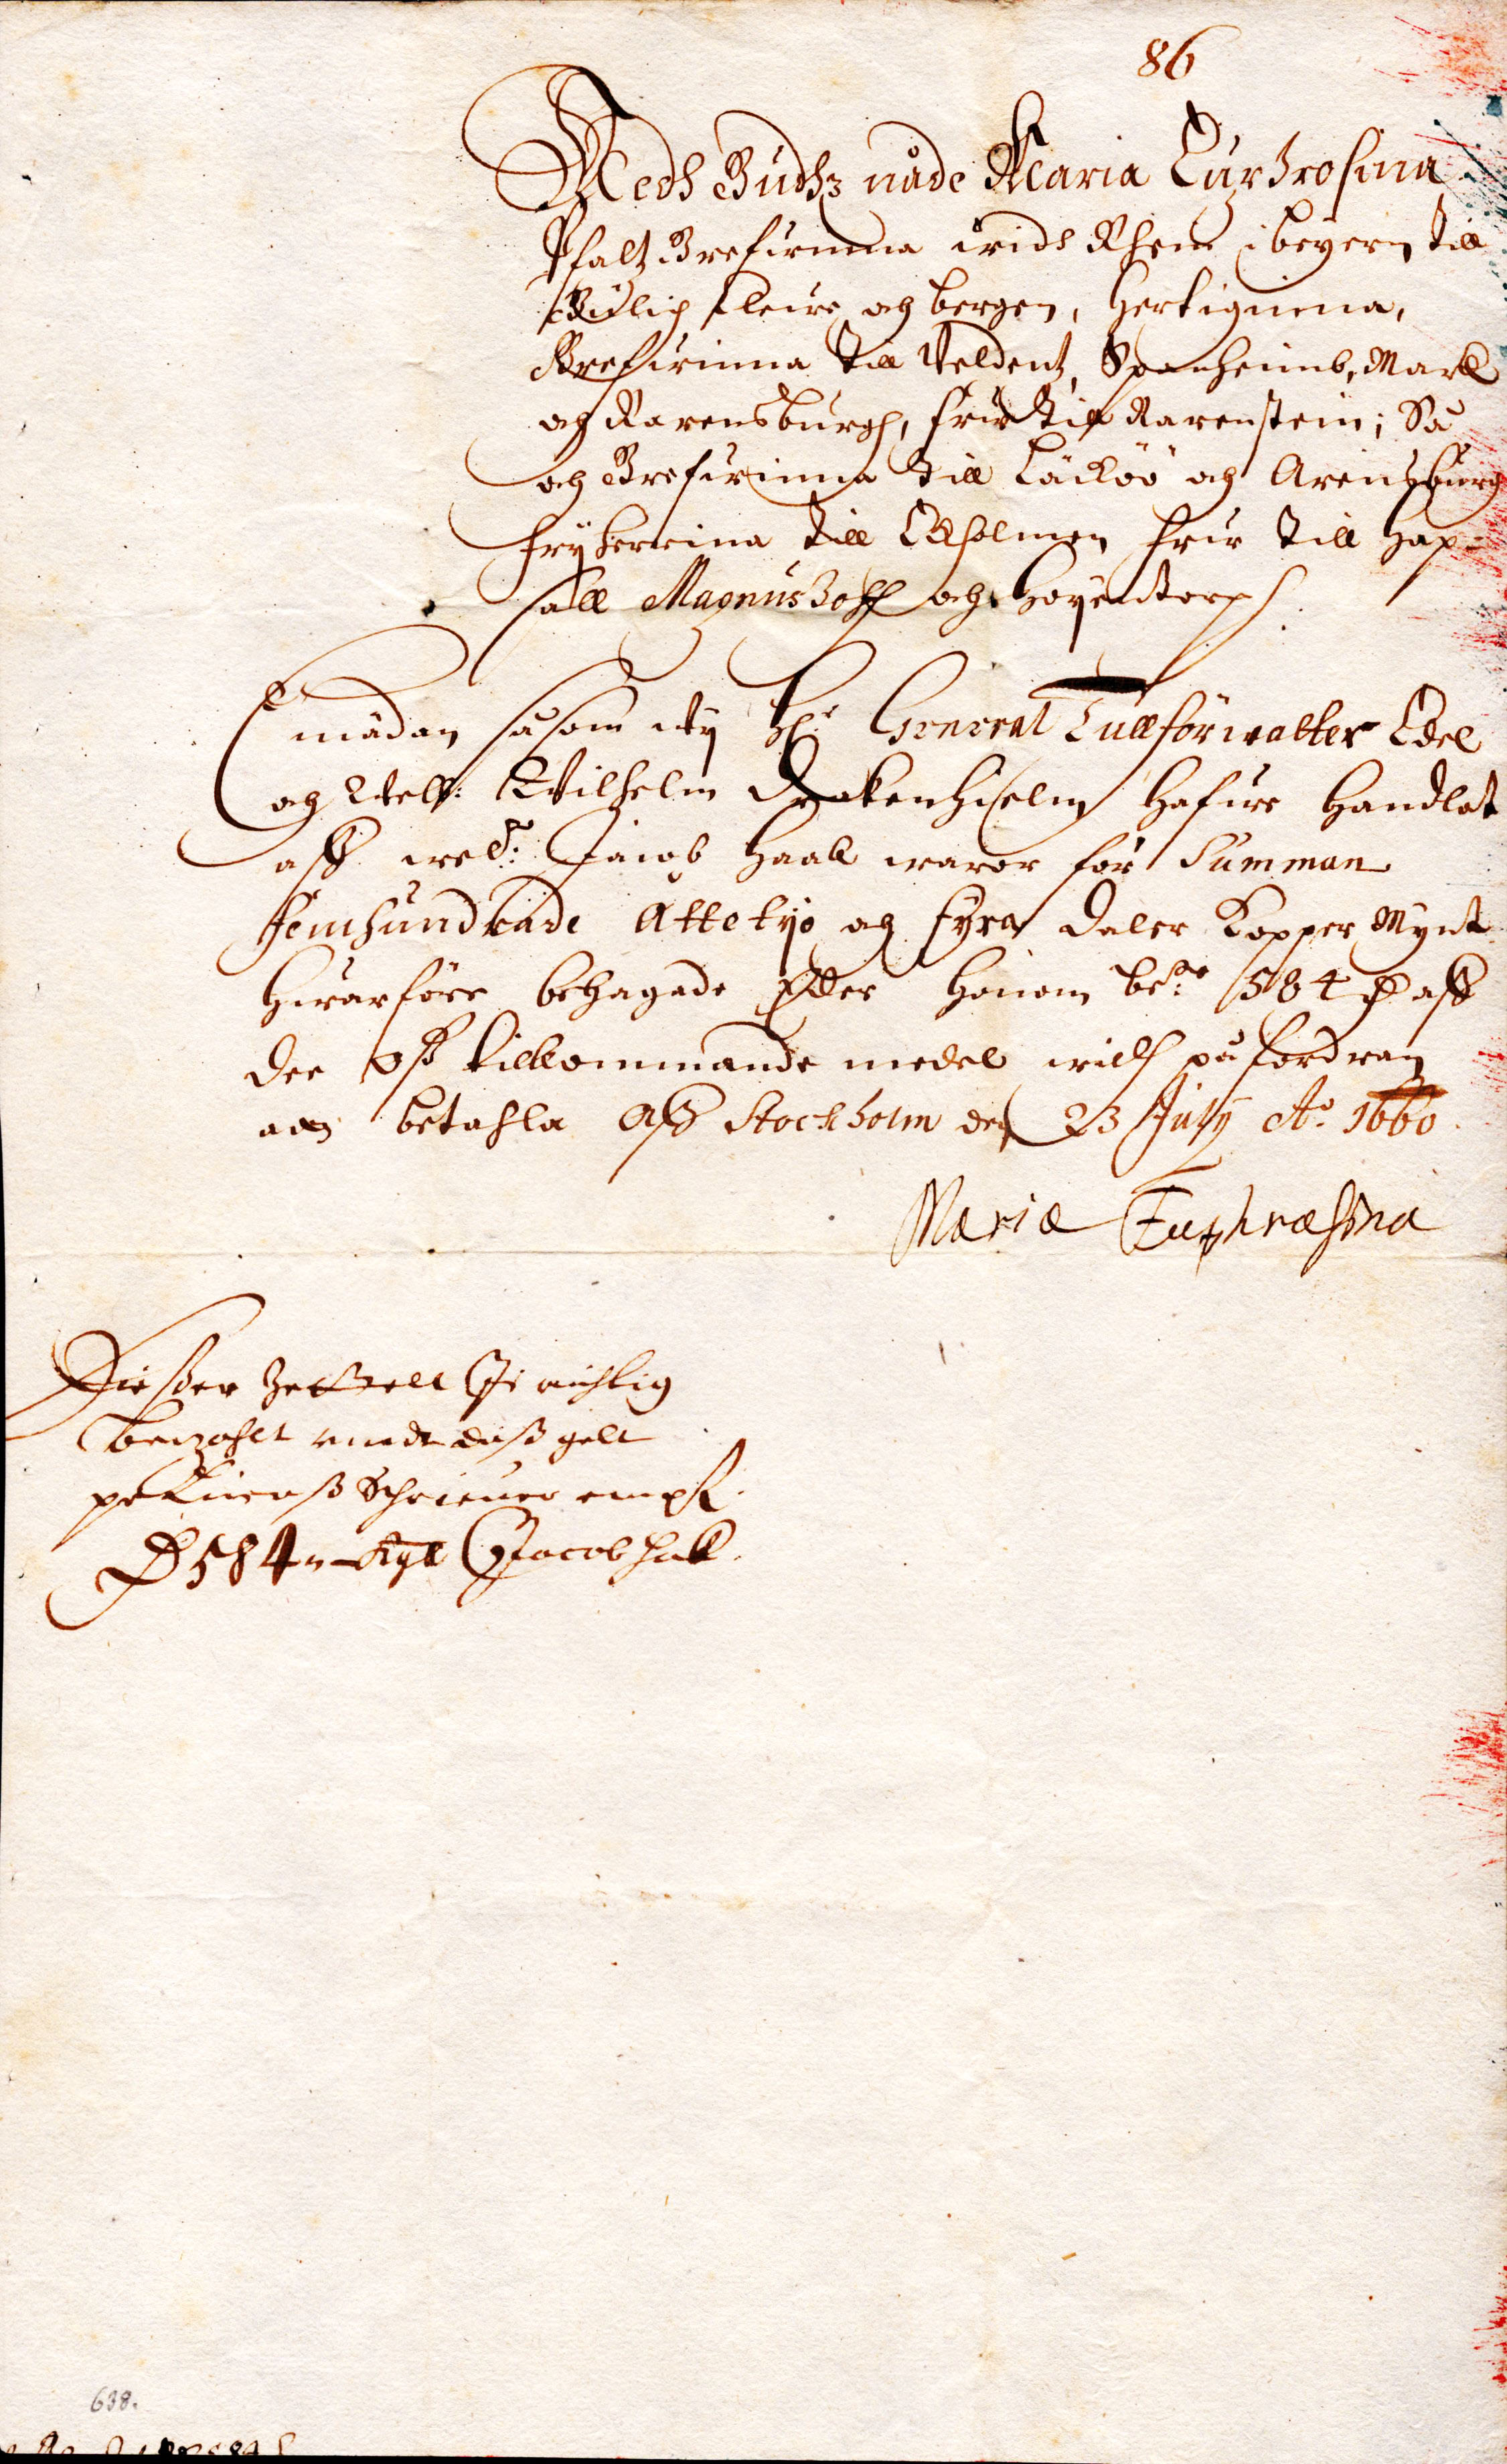 86
Medh Gudhz nåde Maria Eüphrosina
Pfaltz Grefwinna widh Rhein i beyern till
Gülich Cleve och bergen, Hertiginna,
Grefwinna till Veldentz, Spanheimb, Mark
och Ravensburgh, frw till Ravenstein; Så
och Grefwinna till Läcköö och Arensburg
fryherrinna till Ekholmen frw till Hap-
sall Magnushoff och Höyentorp
Emädan såsom wy Hr General Tullförwalter Edel
och Welb: Wilhelm Drakenhielm hafwe handlat
aff wel: Jacob Haak waror för Summan
femhundrade Åttetijo och fyra daler Kopper Mynt
hwarföre behagade Eder honom be:te 584 D aff
dee oss tillkommande medel widh påfordran
betahla Aff Stockholm den 23 July Ao 1660
Maria Euphrosina
Dießer Zettell Is richtig
betzahlt undt daß gelt
Schriewer empf.
D 584 Jacob Hak.
638.